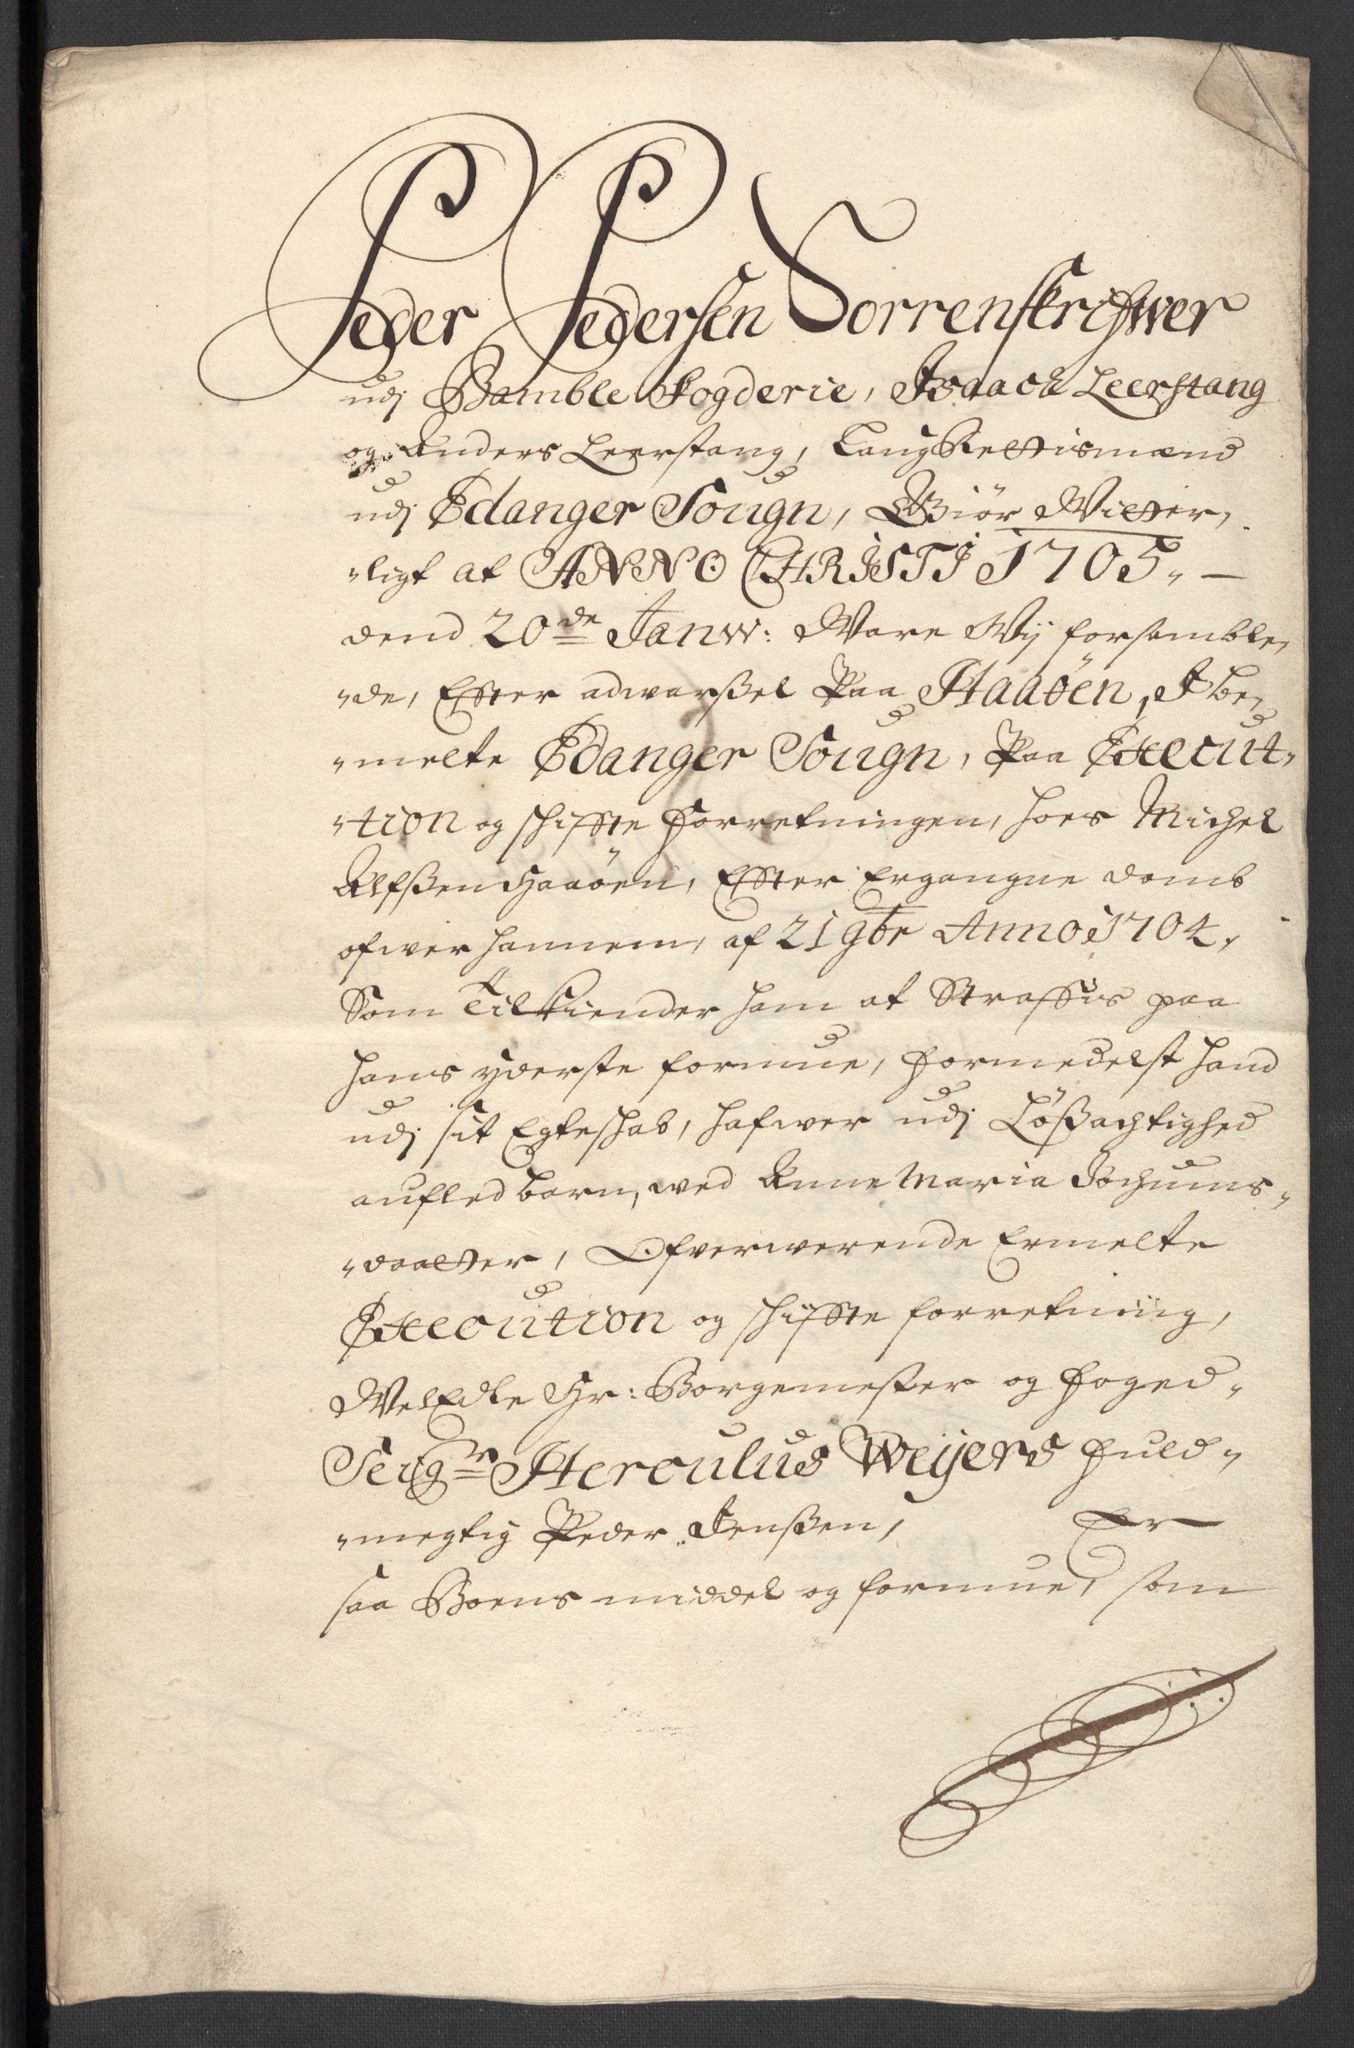 Peder Pedersen Sorrenskrifwer
udj Bamble Fogderie, Isaach Leerstang
og Anders Leerstang, Laug Rettismænd
udj Edanger Sougn, Giör Witter,
"ligt at ANNO CHRISTI 1705,, —
dend 20de Janw: Ware Wij forsamble,
"de, Effter adwarßel Paa Haaöen, I be,
"melte Edanger Sougn, Paa Execut,
"tion og schiffte forretningen, hoes Michel
Alfßen Haaöen, Effter Ergangne domb
ofwer hannem, af 21 9br Anno 1704,
Som Tilkiender ham at Straffis paa
hans yderste formue, formedelst hand
udj sit Egteschab, hafwer udj Lößachtighed
aufled barn, wed Anne Maria Jochums,
"daatter, Ofverwerende Ermelte
Execution og schiffte forretning,
WelEdle Hr: Borgemester og foged,
Seigr Herculus Weijers fuld,
"megtig Peder Jenßen, Er
saa Boens middel og formue, som